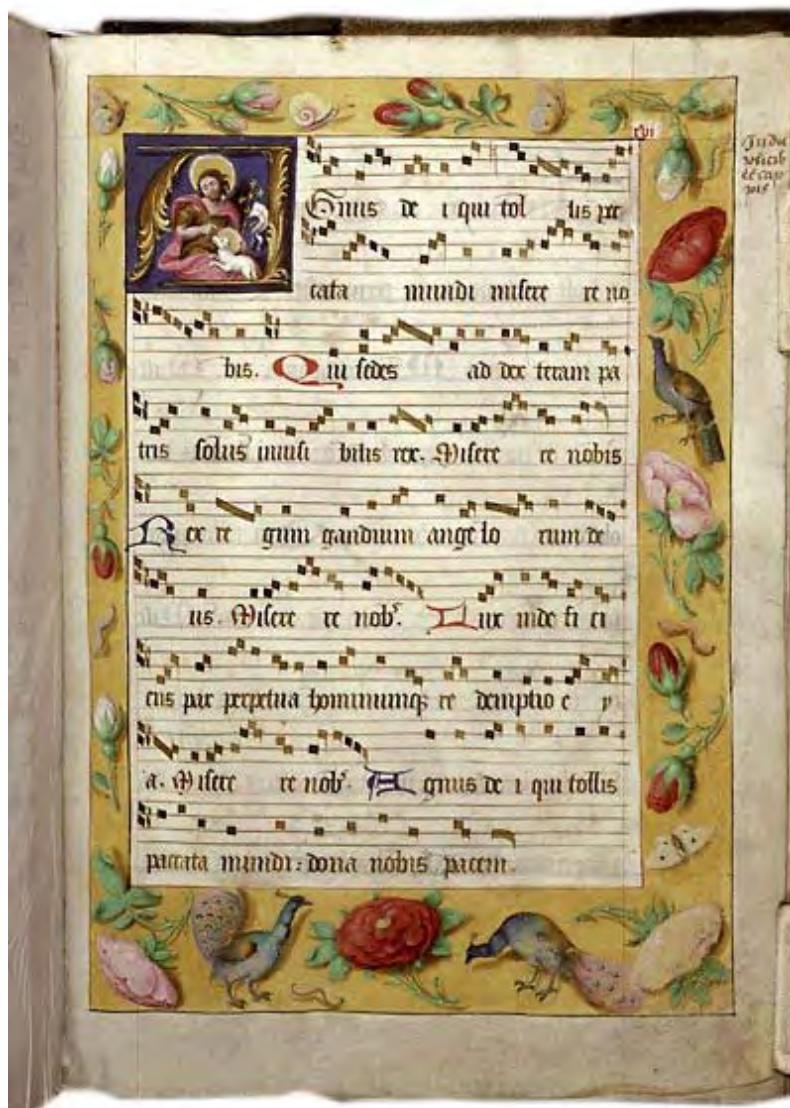 xvi
Agnus de i qui tol lis pec
cata mundi misere re no
bis. Qui sedes ad dex teram pa
tris solus inuisi bilis rex. Misere re nobis
Rex re gum gaudium ange lo rum de
us. Misere re nob. Lux inde fi ci
ens pax perpetua hominumq; re demptio e y
a. Misere re nob. Agnus de i qui tollis
peccata mundi: dona nobis pacem.